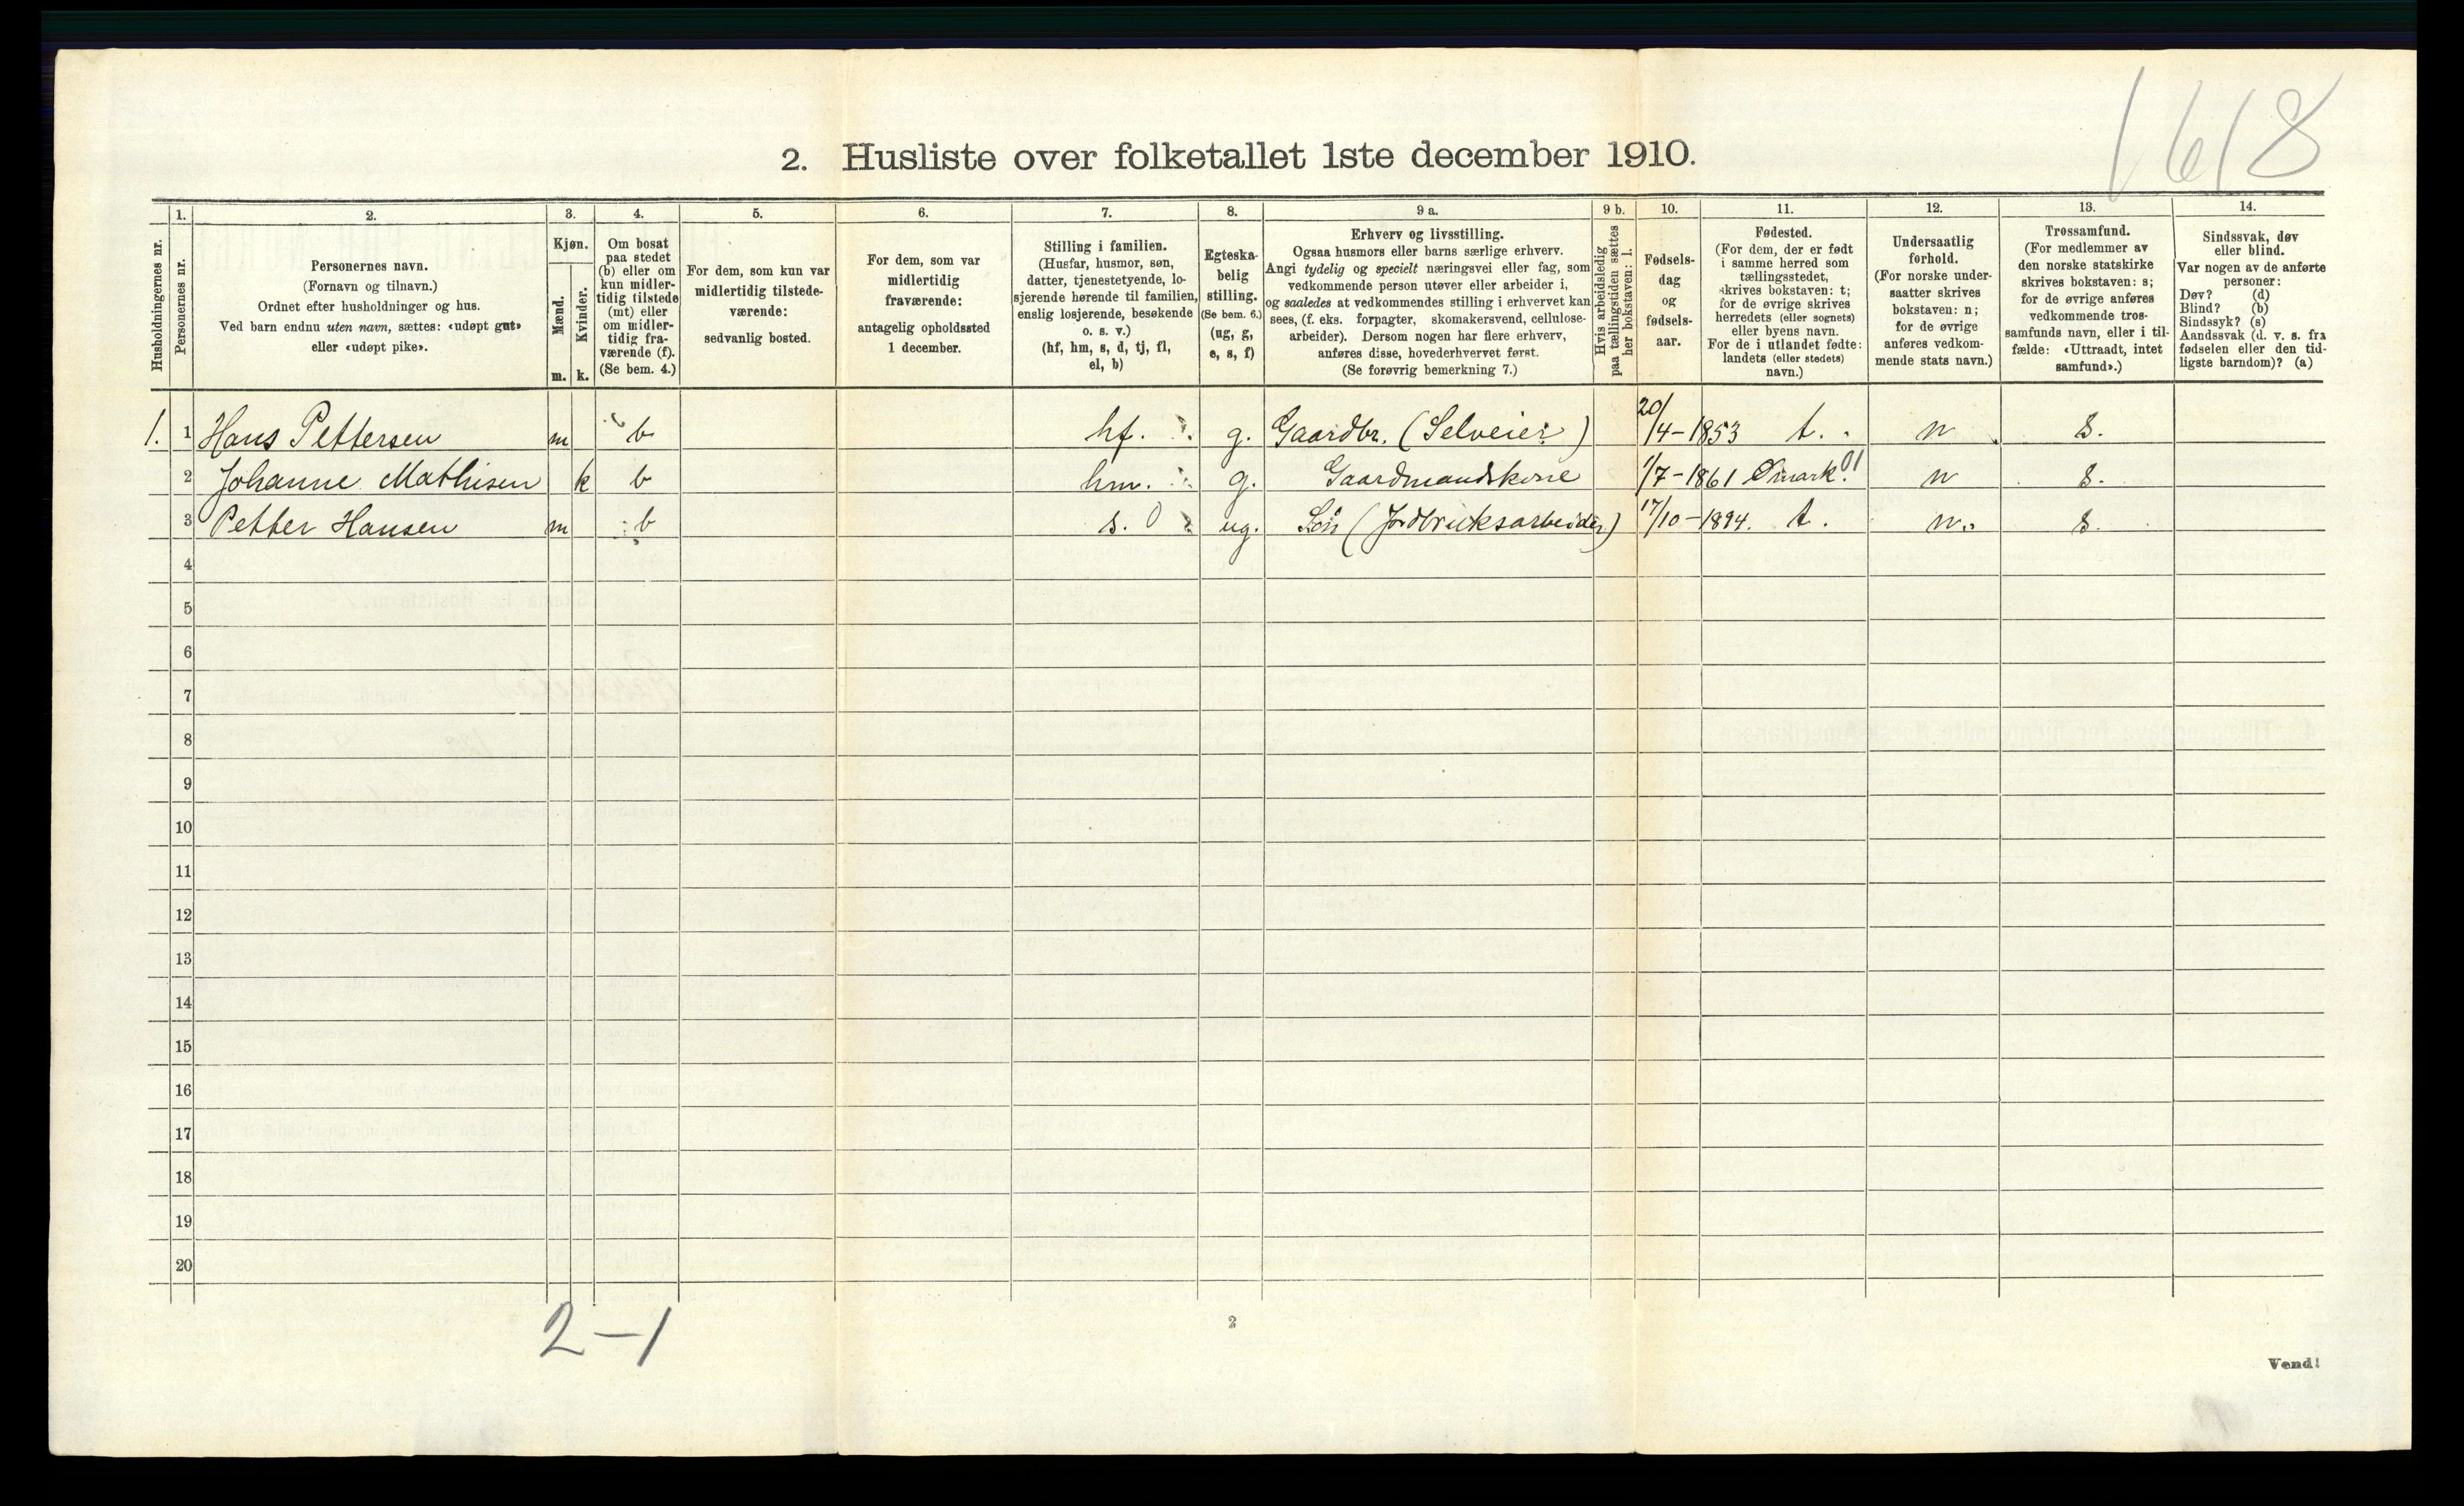 1618
2. Husliste over folketallet 1ste december 1910.
Husholdningernes nr.
1.
Personernes nr.
2.
Personernes navn.
(Fornavn og tilnavn.)
Ordnet efter husholdninger og hus.
Ved barn endnu uten navn, sættes: «udøpt gut»
eller «udøpt pike».
3.
Kjøn.
Mænd.
Kvinder.
m. k.
4.
Om bosat
paa stedet
(b) eller om
kun midler-
tidig tilstede
(mt) eller
om midler-
tidig fra-
værende (f).
(Se bem. 4.)
5.
For dem, som kun var
midlertidig tilstede-
værende:
sedvanlig bosted.
6.
For dem, som var
midlertidig
fraværende:
antagelig opholdssted
1 december.
7.
Stilling i familien.
(Husfar, husmor, søn,
datter, tjenestetyende, lo-
sjerende hørende til familien,
enslig losjerende, besøkende
o. s. v.)
(hf, hm, s, d, tj, fl,
el, b)
8.
Egteska-
belig
stilling.
(Se bem. 6.)
(ug, g,
e, s, f)
9 a.
Erhverv og livsstilling.
Ogsaa husmors eller barns særlige erhverv.
Angi tydelig og specielt næringsvei eller fag, som
vedkommende person utøver eller arbeider i,
og saaledes at vedkommendes stilling i erhvervet kan
sees, (f. eks. forpagter, skomakersvend, cellulose-
arbeider). Dersom nogen har flere erhverv,
anføres disse, hovederhvervet først.
(Se forøvrig bemerkning 7.)
9 b.
Hvis arbeidsledig
paa tællingstiden sættes
her bokstaven: l.
10.
Fødsels-
dag
og
fødsels-
aar.
11.
Fødested.
(For dem, der er født
i samme herred som
tællingsstedet,
skrives bokstaven: t;
for de øvrige skrives
herredets (eller sognets)
eller byens navn.
For de i utlandet fødte:
landets (eller stedets)
navn.)
12.
Undersaatlig
forhold.
(For norske under-
saatter skrives
bokstaven: n;
for de øvrige
anføres vedkom-
mende stats navn.)
13.
Trossamfund.
(For medlemmer av
den norske statskirke
skrives bokstaven: s;
for de øvrige anføres
vedkommende tros-
samfunds navn, eller i til-
fælde: «Uttraadt, intet
samfund».)
14.
Sindssvak, døv
eller blind.
Var nogen av de anførte
personer:
Døv? (d)
Blind? (b)
Sindssyk? (s)
Aandssvak (d. v. s. fra
fødselen eller den tid-
ligste barndom)? (a)
1. 1 Hans Pettersen m b hf. g. Gaardbr. (Selveier) 20/4-1853 t. n s.
2 Johanne Mathisen k b hm. g. Gaardmandskone 1/7-1861 Ømark 01 n s.
3 Petter Hansen m b s. 0 ug. Søn (Jordbruksarbeider) 17/10-1894. t. n. s.
4
5
6
7
8
9
10
11
12
13
14
15
16
17
18
19
20
2-1
2
Vend!